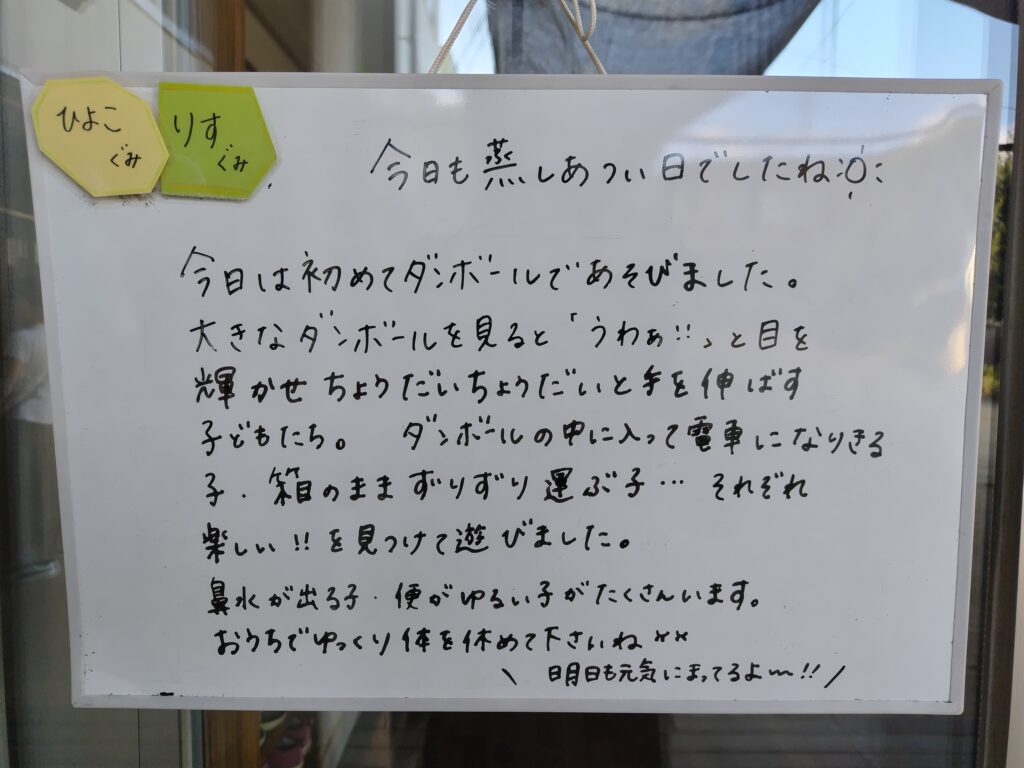 ひよこ
ぐみ
りす
ぐみ
今日も蒸しあつい日でしたね
今日は初めてダンボールであそびました。
大きなダンボールを見ると「うわぁ!!」と目を
輝かせちょうだいちょうだいと手を伸ばす
子どもたち。 ダンボールの中に入って電車になりきる
子・箱のままずりずり運ぶ子… それぞれ
楽しい!!を見つけて遊びました。
鼻水が出る子・便がゆるい子がたくさんいます。
おうちでゆっくり体を休めて下さいね××
\ 明日も元気にまってるよ〜!! /